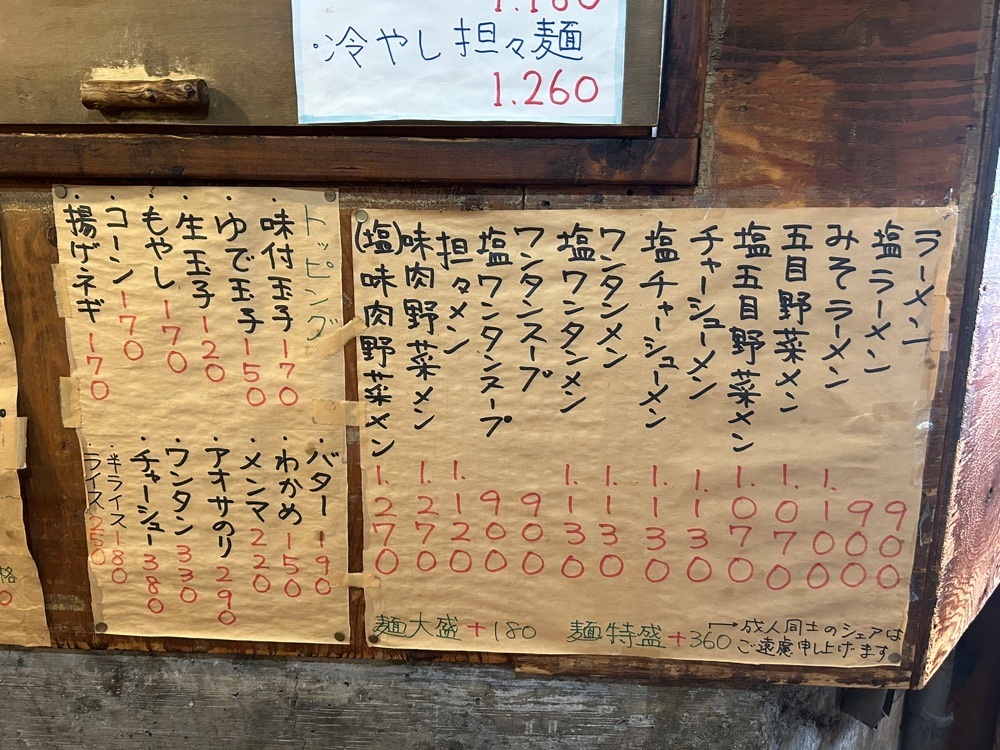 ・冷やし担々麺
1.260
ラーメン 900
塩ラーメン 900
みそラーメン 1.100
五目野菜メン 1.070
塩五目野菜メン 1.070
チャーシューメン 1.130
塩チャーシューメン 1.130
ワンタンメン 1.130
塩ワンタンメン 1.130
ワンタンスープ 900
塩ワンタンスープ 900
担々メン 1.120
味肉野菜メン 1.270
(塩)味肉野菜メン 1.270
麺大盛+180 麺特盛+360
→成人同士のシェアは
ご遠慮申し上げます
トッピング
・味付玉子170
・ゆで玉子150
・生玉子120
・もやし170
・コーン170
・揚げネギ170
・バター190
・わかめ150
・メンマ220
・アオサのり290
・ワンタン330
・チャーシュー380
・半ライス180
・ライス250
格